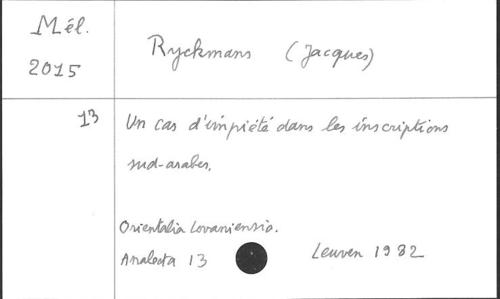 Mél.
2015
Ryckmans (Jacques)
13
Un cas d'impiété dans les inscriptions
sud-arabes.
Orientalia Lovaniensia.
Analecta 13
Leuven 1982